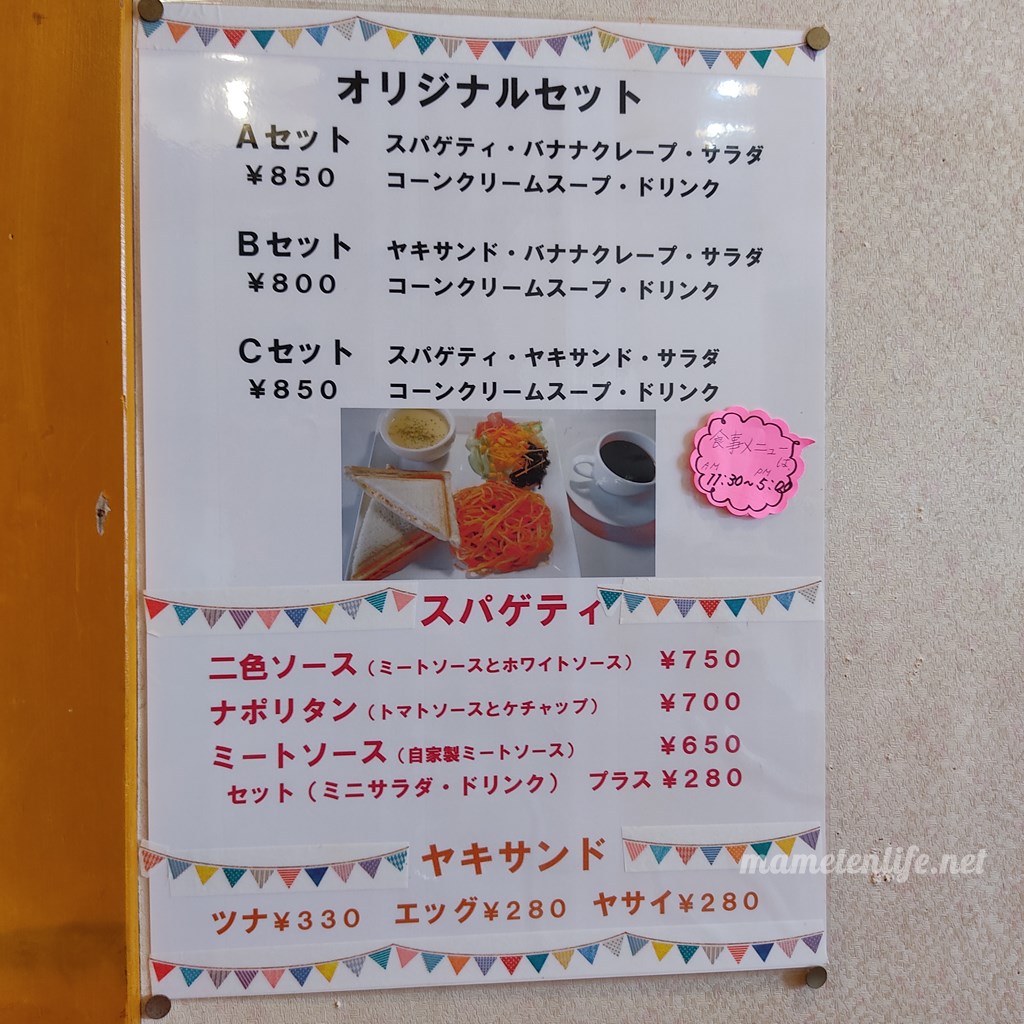 オリジナルセット
Aセット スパゲティ・バナナクレープ・サラダ
¥850 コーンクリームスープ・ドリンク
Bセット ヤキサンド・バナナクレープ・サラダ
¥800 コーンクリームスープ・ドリンク
Cセット スパゲティ・ヤキサンド・サラダ
¥850 コーンクリームスープ・ドリンク
食事メニュー
は
AM PM
11:30~5:00
スパゲティ
二色ソース(ミートソースとホワイトソース) ¥750
ナポリタン(トマトソースとケチャップ) ¥700
ミートソース(自家製ミートソース) ¥650
セット(ミニサラダ・ドリンク) プラス¥280
ヤキサンド
ツナ¥330 エッグ¥280 ヤサイ¥280
mametenlife.net